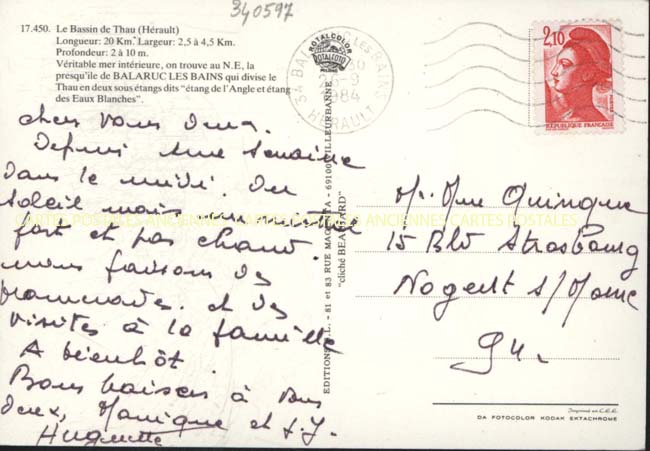 340597
17.450. Le Bassin de Thau (Hérault)
Longueur: 20 Km Largeur: 2,5 à 4,5 Km.
Profondeur: 2 à 10 m.
Véritable mer intérieure, on trouve au N.E, la
presqu'ile de BALARUC LES BAINS qui divise le
Thau en deux sous étangs dits "étang de l'Angle et étang
des Eaux Blanches".
chers vous deux.
Depuis une semaine
dans le midi. Du
soleil mais
fort et pas chaud.
nous faisons des
promenades et des
visites à la famille
A bientôt
Bons baisers à vous
deux, Monique et J.J.
Huguette
ROTALCOLOR
ROTALFOTO
34 BALARUC LES BAINS
1984
HERAULT
2,10
REPUBLIQUE FRANCAISE
M. Mme Quinque
15 Blv Strasbourg
Nogent s/Marne
94
69100 VILLEURBANNE
81 et 83 RUE
"cliché BEAUJARD"
CARTES POSTALES ANCIENNES CARTES POSTALES ANCIENNES CARTES POSTALES
Imprimé en C.E.E.
DA FOTOCOLOR KODAK EKTACHROME